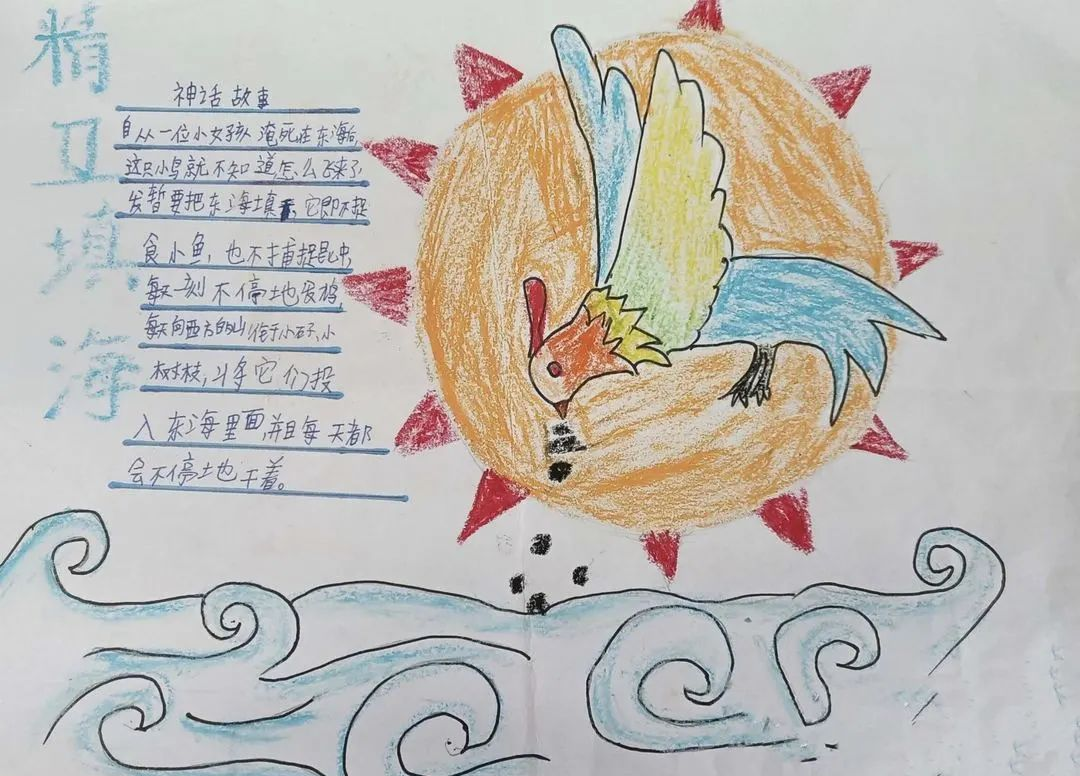 精卫填海
神话故事
自从一位小女孩淹死在东海后
这只小鸟就不知道怎么飞来了,
发暂要把东海填 ,它即不捉
食小鱼,也不捕捉昆虫
每一刻不停地发鸣,
每天向西方的山 小石子、小
树枝,斗争它们投
入东海里面,并且每天都
会不停土地干着。